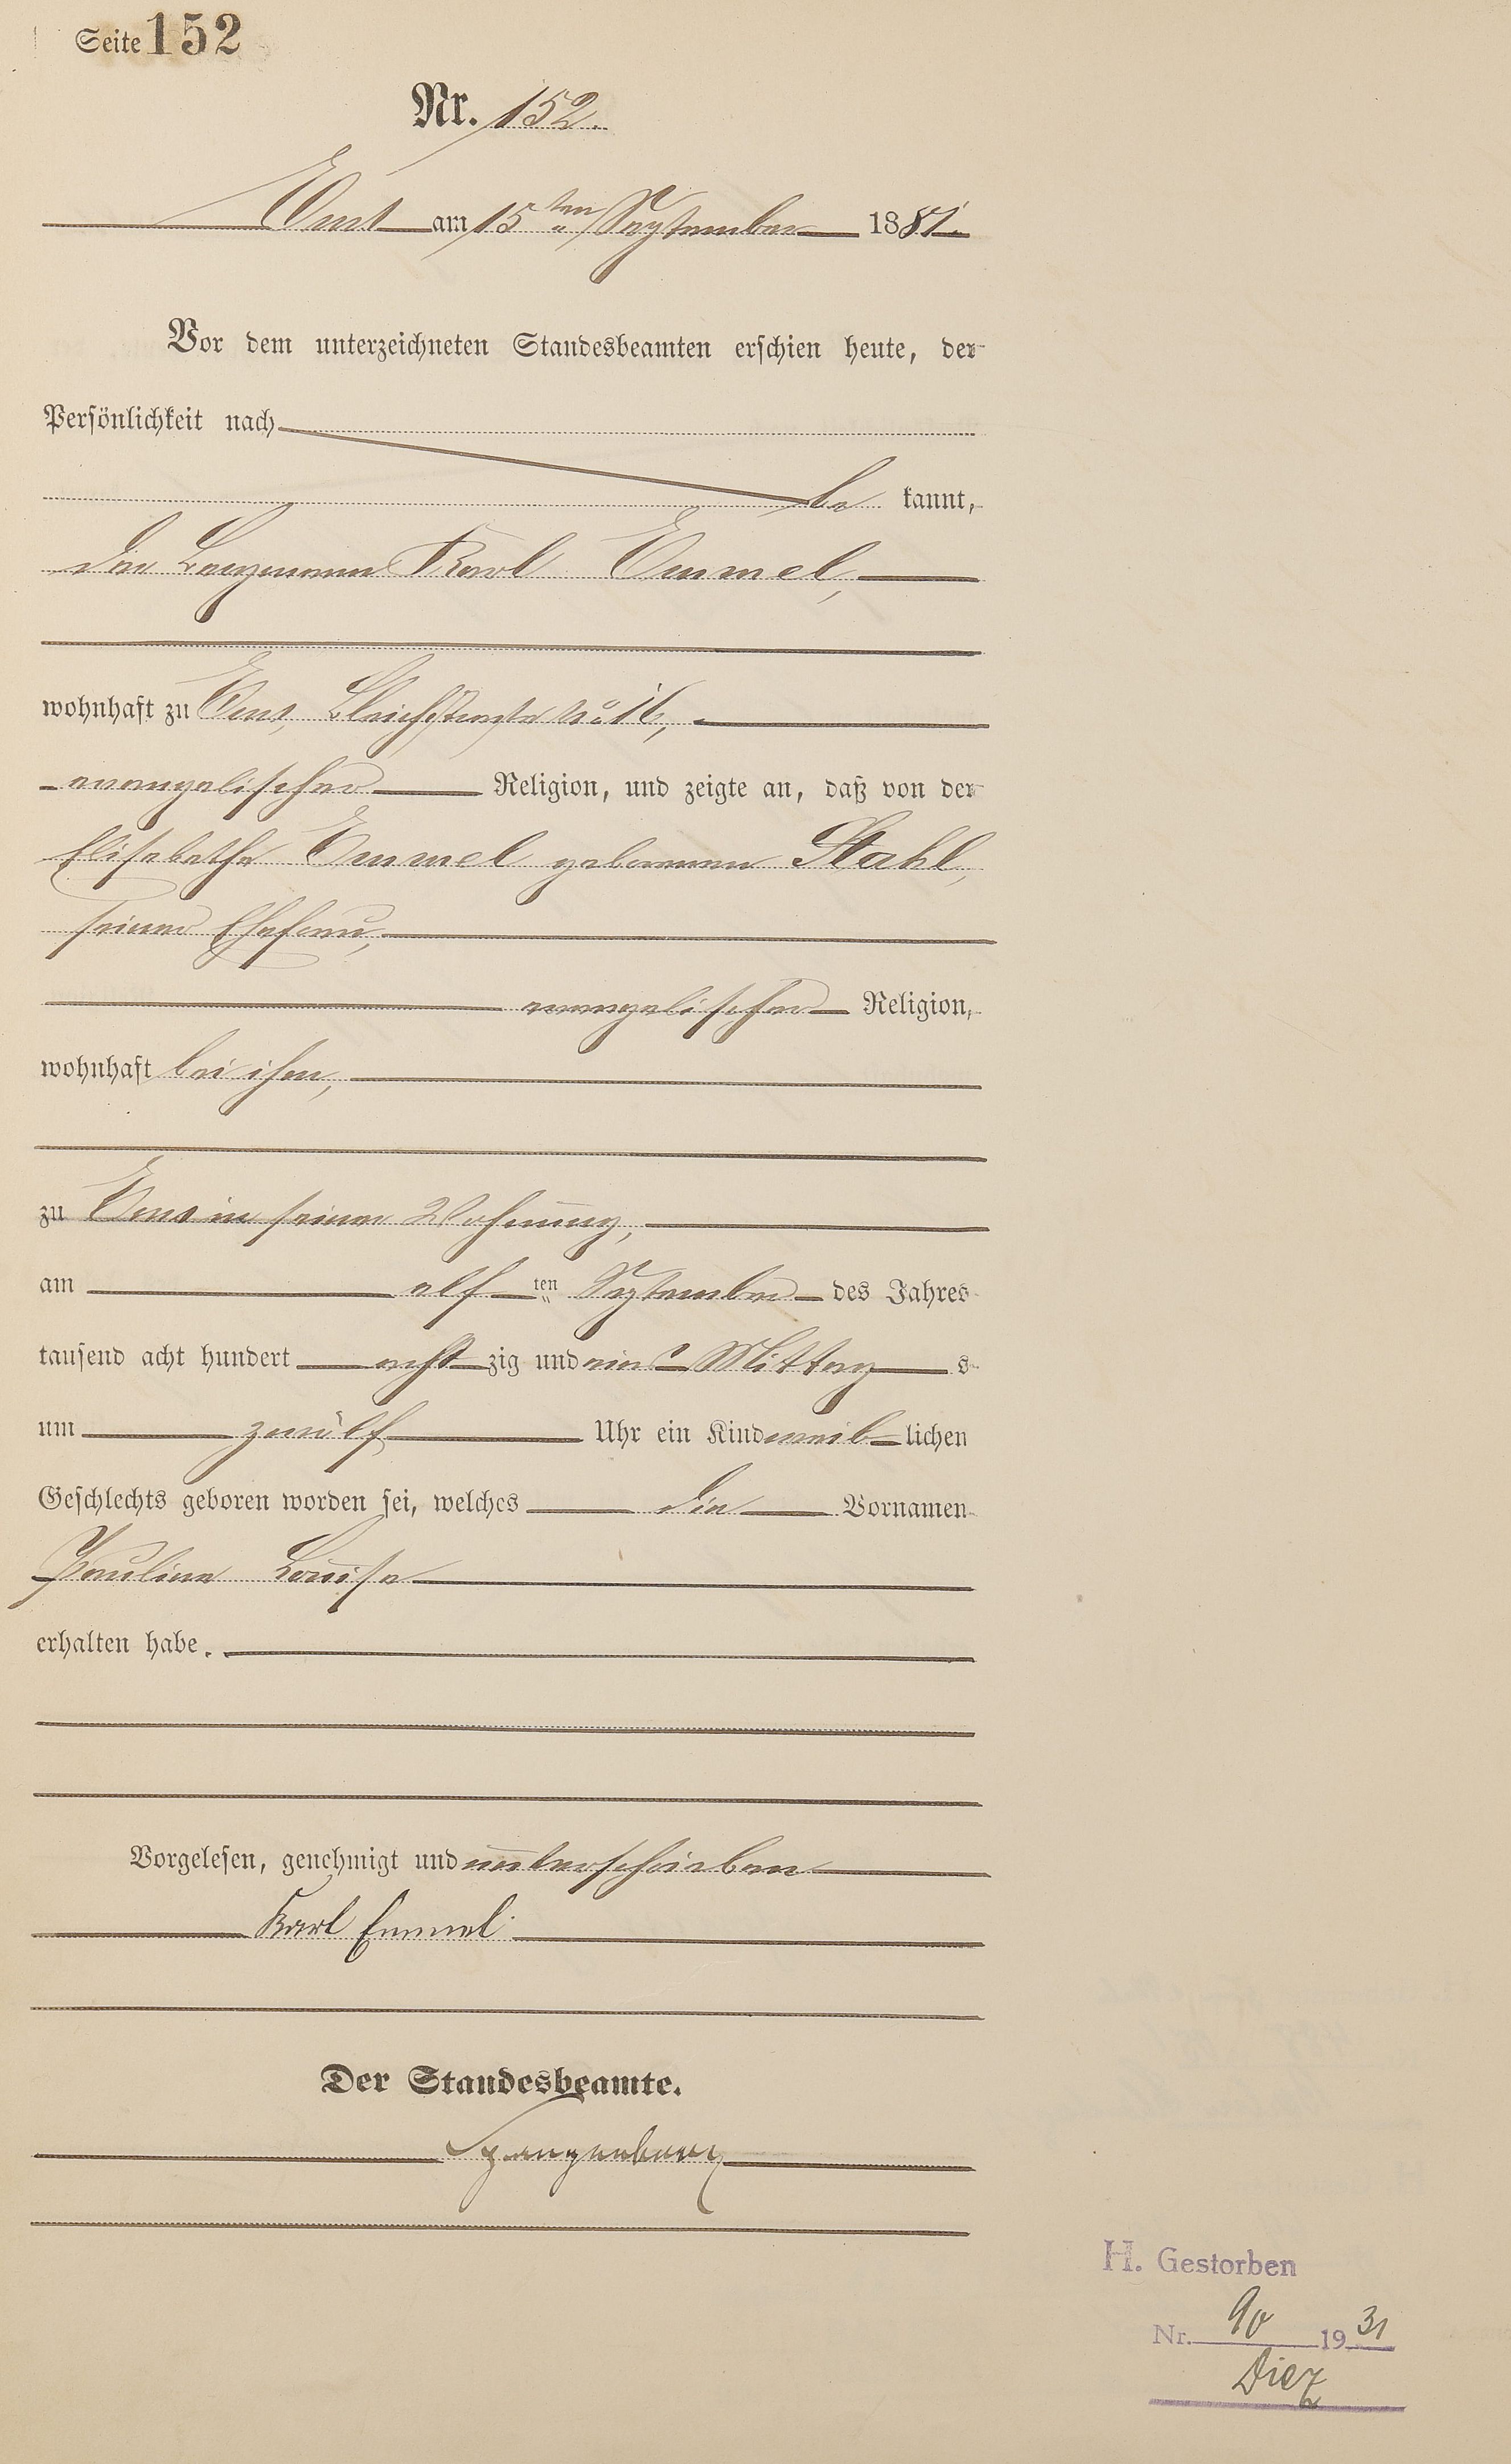 Seite 152
Nr. 152.
Ems am 15ten September 1881.
Vor dem unterzeichneten Standesbeamten erschien heute, der
Persönlichkeit nach
be kannt,
der Bergmann Karl Emmel,
wohnhaft zu Ems, Bleichstraße No 16,
evangelischer Religion, und zeigte an, daß von der
Elisabethe Emmel geborenen Stahl,
seiner Ehefrau,
evangelischer Religion,
wohnhaft bei ihm,
zu Ems in seiner Wohnung,
am elf ten September des Jahres
tausend acht hundert acht zig und eins Mittag s
um zwölf Uhr ein Kind weib lichen
Geschlechts geboren worden sei, welches die Vornamen
Pauline Louise
erhalten habe.
Vorgelesen, genehmigt und unterschrieben
Karl Emmel
Der Standesbeamte.
Spangenberg
H. Gestorben
Nr. 90 1931
Diez